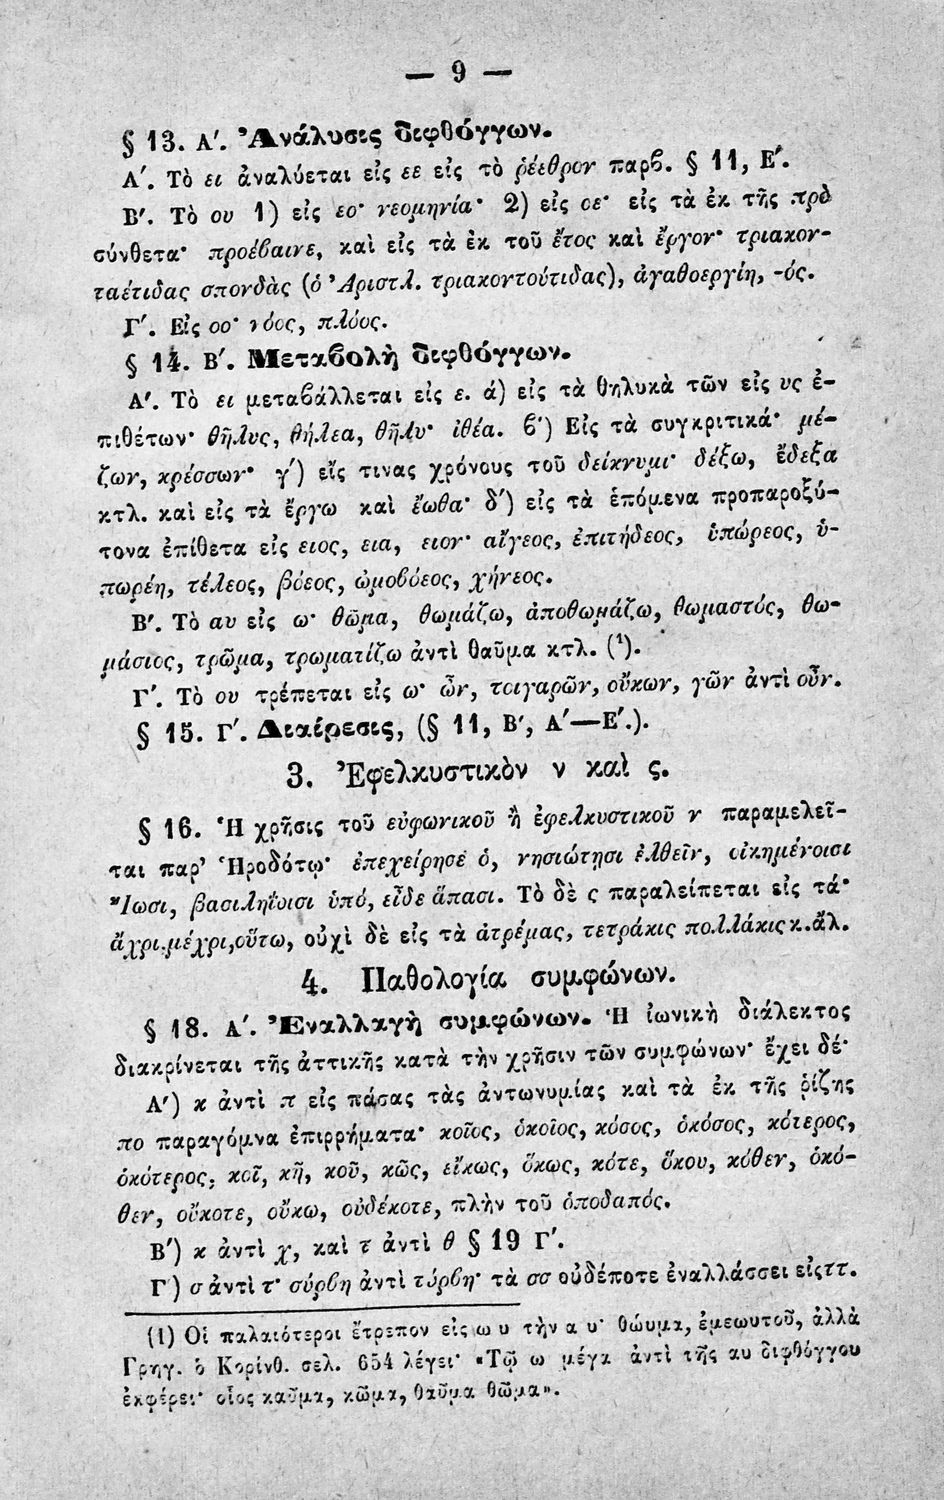 — 9 —
§ 13. Α΄. Ἀνάλυσις διφθόγγων.
Α΄. Τὸ ει ἀναλύεται εἰς εε εἰς τὸ ῥέεθρον παρβ. § 11, Ε΄.
Β΄. Τὸ ου 1) εἰς εο· νεομηνία· 2) εἰς οε· εἰς τὰ ἐκ τῆς πρὸ
σύνθετα· προέβαινε, καὶ εἰς τὰ ἐκ τοῦ ἔτος καὶ ἔργον· τριακον-
ταέτιδας σπονδὰς (ὁ Ἀριστλ. τριακοντούτιδας), ἀγαθοεργίη, -ός.
Γ΄. Εἰς οο· νόος, πλόος.
§ 14. Β΄. Μεταβολὴ διφθόγγων.
Α΄. Τὸ ει μεταβάλλεται εἰς ε. ά) εἰς τὰ θηλυκὰ τῶν εἰς υς ἐ-
πιθέτων· θῆλυς, θήλεα, θῆλυ· ἰθέα. β΄) Εἰς τὰ συγκριτικά· μέ-
ζων, κρέσσων· γ΄) εἴς τινας χρόνους τοῦ δείκνυμι· δέξω, ἔδεξα
κτλ. καὶ εἰς τὰ ἔργω καὶ ἔωθα· δ΄) εἰς τὰ ἑπόμενα προπαροξύ-
τονα ἐπίθετα εἰς ειος, εια, ειον· αἴγεος, ἐπιτήδεος, ὑπώρεος, ὑ-
πωρέη, τέλεος, βόεος, ὠμοβόεος, χήνεος.
Β΄. Τὸ αυ εἰς ω· θῶμα, θωμάζω, ἀποθωμάζω, θωμαστός, θω-
μάσιος, τρῶμα, τρωματίζω ἀντὶ θαῦμα κτλ. (¹).
Γ΄. Τὸ ου τρέπεται εἰς ω· ὦν, τοιγαρῶν, οὔκων, γῶν ἀντὶ οὖν.
§ 15. Γ΄. Διαίρεσις, (§ 11, Β΄, Α΄—Ε΄.).
3. Ἐφελκυστικὸν ν καὶ ς.
§ 16. Ἡ χρῆσις τοῦ εὐφωνικοῦ ἢ ἐφελκυστικοῦ ν παραμελεῖ-
ται παρ’ Ἡροδότῳ· ἐπεχείρησε ὁ, νησιώτησι ἐλθεῖν, οἰκημένοισι
Ἴωσι, βασιληΐοισι ὑπό, εἶδε ἅπασι. Τὸ δὲ ς παραλείπεται εἰς τά·
ἄχρι, μέχρι, οὕτω, οὐχὶ δὲ εἰς τὰ ἀτρέμας, τετράκις πολλάκις κ.ἄλ.
4. Παθολογία συμφώνων.
§ 18. Α΄. Ἐναλλαγὴ συμφώνων. Ἡ ἰωνικὴ διάλεκτος
διακρίνεται τῆς ἀττικῆς κατὰ τὴν χρῆσιν τῶν συμφώνων· ἔχει δέ·
Α΄) κ ἀντὶ π εἰς πάσας τὰς ἀντωνυμίας καὶ τὰ ἐκ τῆς ῥίζης
πο παραγόμνα ἐπιρρήματα· κοῖος, ὁκοῖος, κόσος, ὁκόσος, κότερος,
ὁκότερος, κοῖ, κῆ, κοῦ, κῶς, εἴκως, ὅκως, κότε, ὅκου, κόθεν, ὁκό-
θεν, οὔκοτε, οὔκω, οὐδέκοτε, πλὴν τοῦ ὁποδαπός.
Β΄) κ ἀντὶ χ, καὶ τ ἀντὶ θ § 19 Γ΄.
Γ΄) σ ἀντὶ τ· σύρβη ἀντὶ τύρβη· τὰ σσ οὐδέποτε ἐναλλάσσει εἰς ττ.
(1) Οἱ παλαιότεροι ἔτρεπον εἰς ω υ τὴν α υ· θώυμα, ἐμεωυτοῦ, ἀλλὰ
Γρηγ. ὁ Κορίνθ. σελ. 654 λέγει· «Τῷ ω μέγα ἀντὶ τῆς αυ διφθόγγου
ἐκφέρει· οἷος καῦμα, κῶμα, θαῦμα θῶμα».